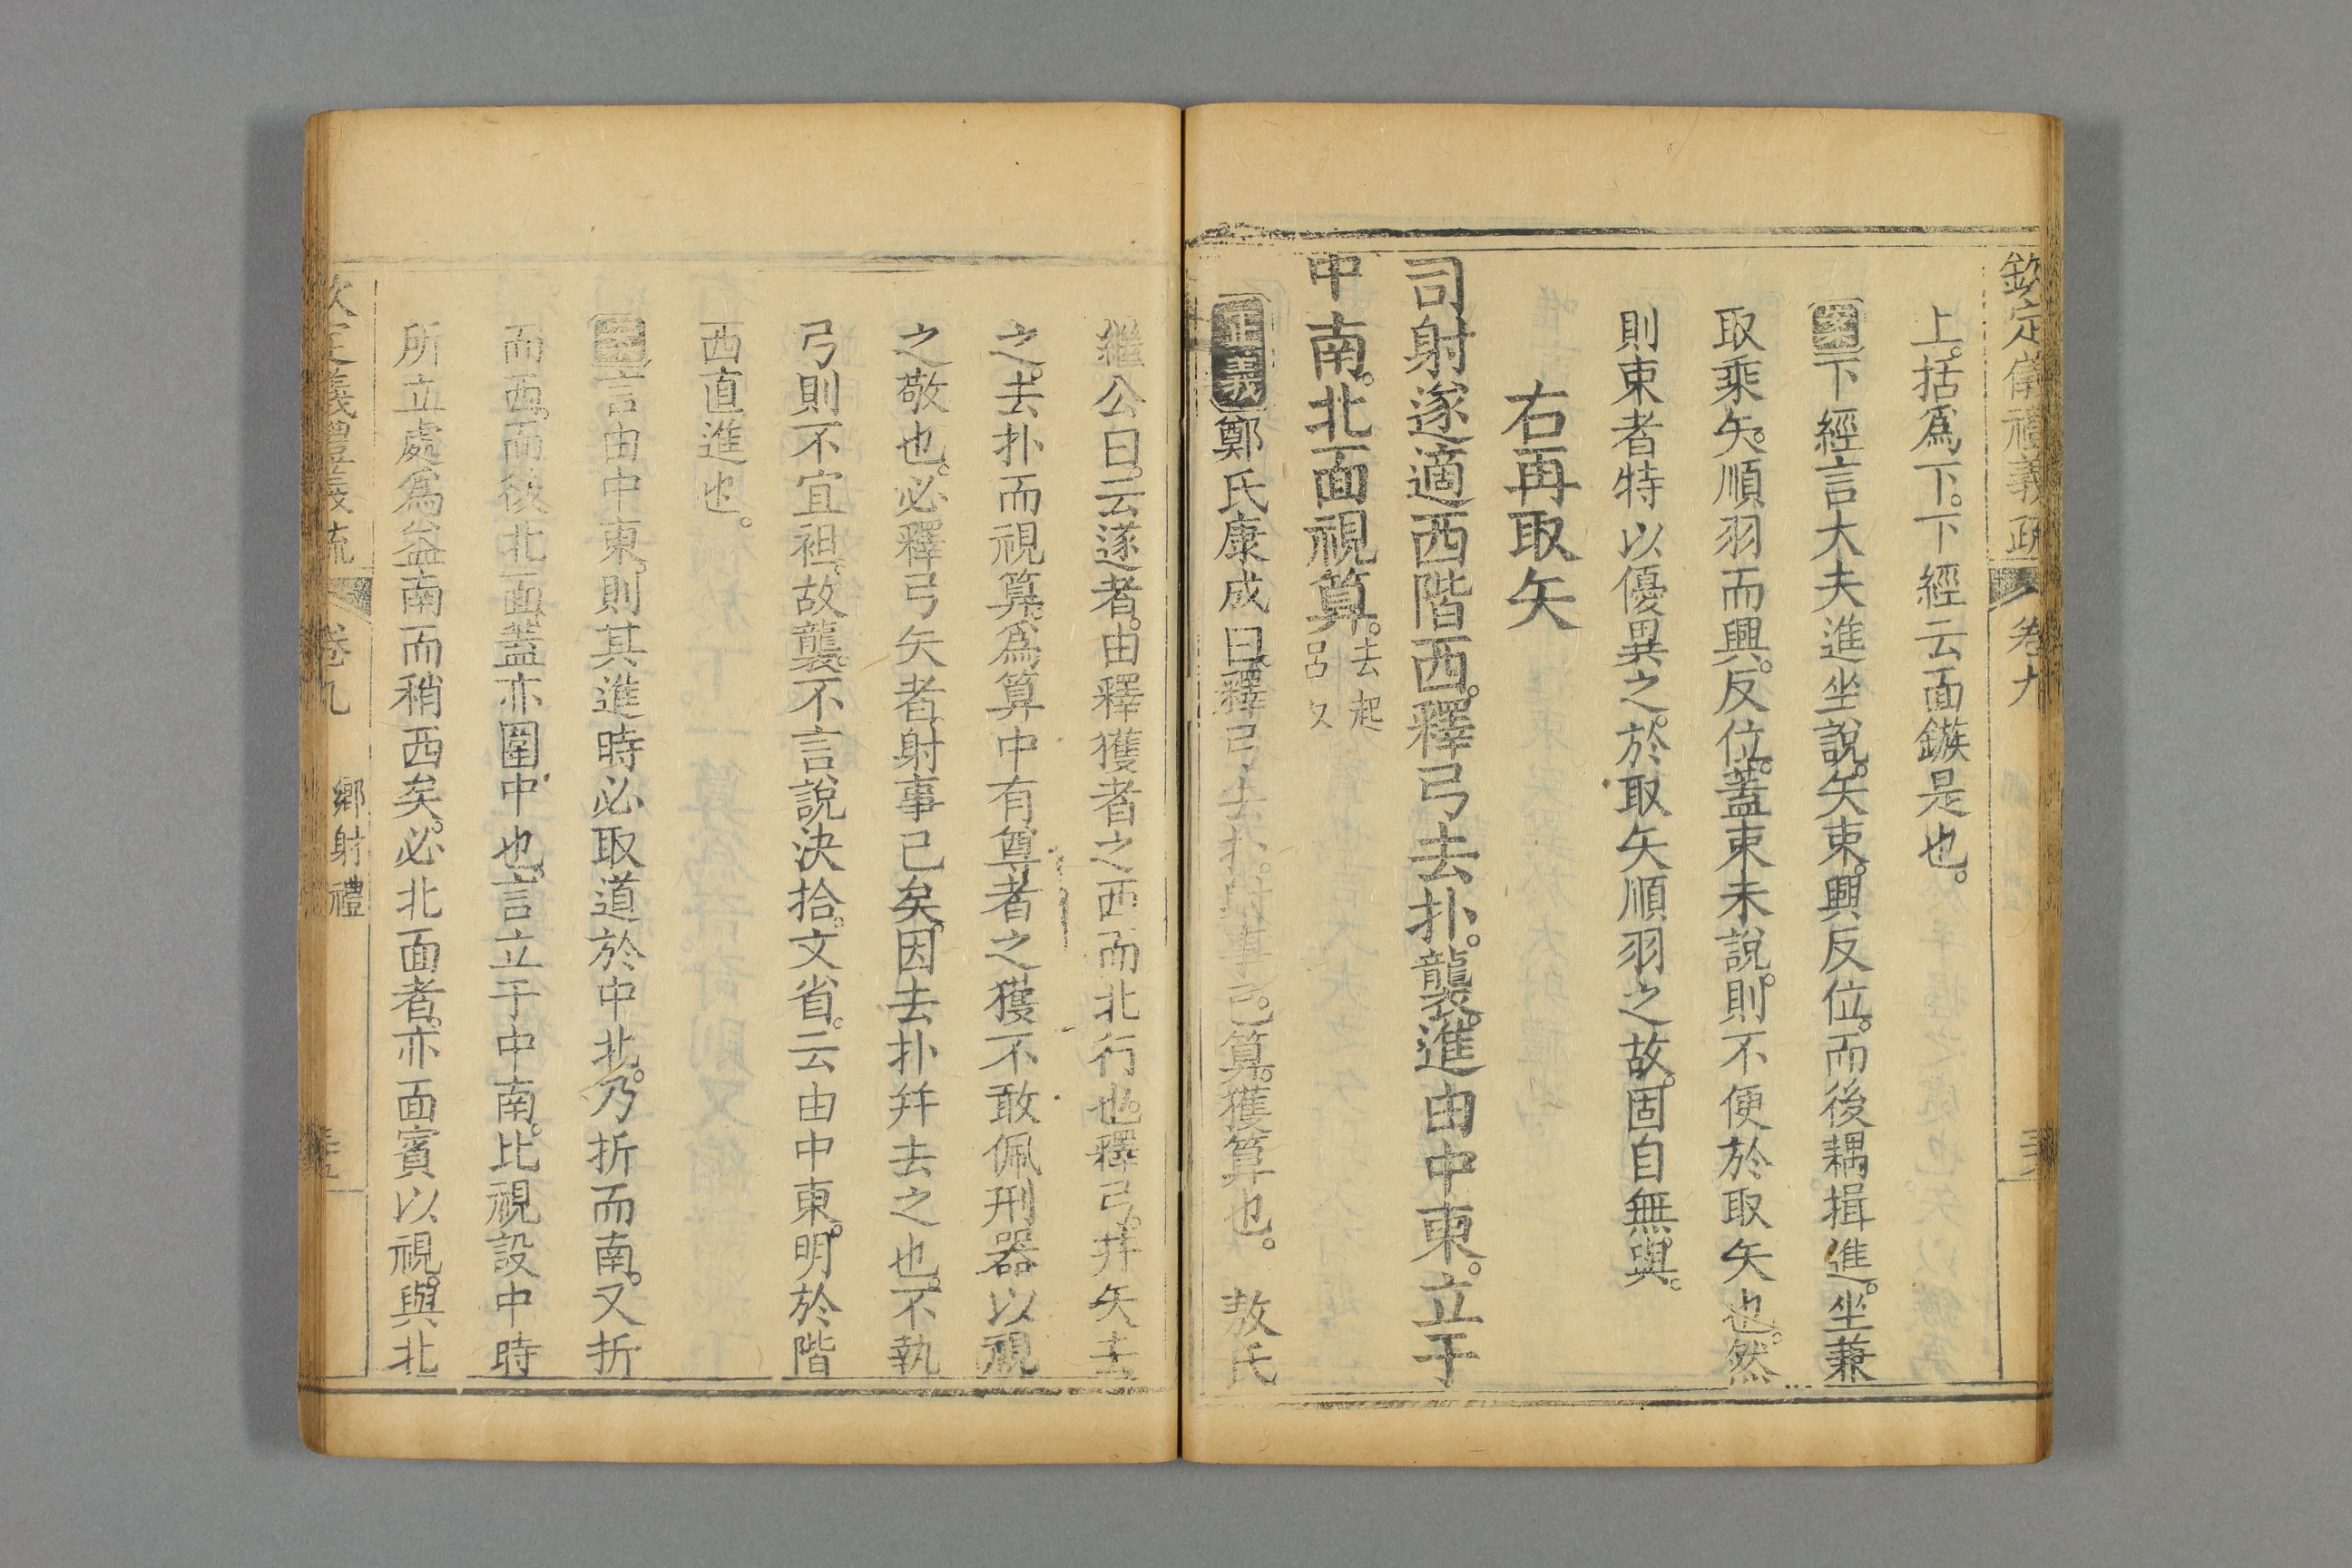 欽定儀禮義疏 卷九
上。括爲下。下經云面鏃是也。
案下經言大夫進坐說。矢束。興反位。而後耦揖進。坐兼
取乘矢。順羽而興。反位。蓋束未說。則不便於取矢也。然
則束者特以優異之。於取矢順羽之故。固自無與。
右再取矢
司射遂適西階西。釋弓去扑。襲。進由中東。立于
中南。北面視算。去起呂反
正義鄭氏康成曰。釋弓去扑。射事已。算。獲算也。 敖氏
繼公曰。云遂者。由釋獲者之西而北行也。釋弓。并矢去
之。去扑而視算。爲算中有尊者之獲。不敢佩刑器以視
之。敬也。必釋弓矢者。射事已矣。因去扑幷去之也。不執
弓則不宜袒。故襲。不言說決拾。文省。云由中東。明於階
西直進也。
言由中東。則其進時必取道於中北。乃折而南。又折
而西。而後北面。蓋亦圍中也。言立于中南。比視設中時
所立處爲益南而稍西矣。必北面者。亦面賓以視。與北
欽定儀禮義疏 卷九 鄉射禮